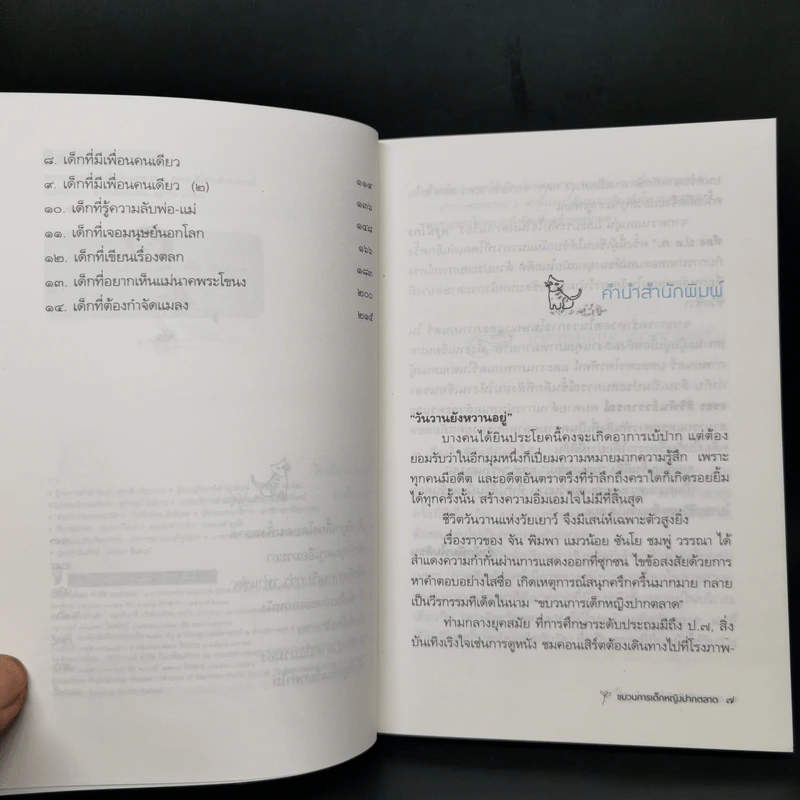 ๘. เด็กที่มีเพื่อนคนเดียว ๑๑๔
๙. เด็กที่มีเพื่อนคนเดียว (๒) ๑๓๖
๑๐. เด็กที่รู้ความลับพ่อ-แม่ ๑๔๘
๑๑. เด็กที่เจอมนุษย์นอกโลก ๑๖๖
๑๒. เด็กที่เขียนเรื่องตลก ๑๘๓
๑๓. เด็กที่อยากเห็นแม่นาคพระโขนง ๒๐๐
๑๔. เด็กที่ต้องกำจัดแมลง ๒๑๕
คำนำสำนักพิมพ์
“วันวานยังหวานอยู่”
บางคนได้ยินประโยคนี้คงจะเกิดอาการเบ้ปาก แต่ต้อง
ยอมรับว่าในอีกมุมหนึ่งก็เปี่ยมความหมายมากความรู้สึก เพราะ
ทุกคนมีอดีต และอดีตอันตราตรึงที่รำลึกถึงคราใดก็เกิดรอยยิ้ม
ได้ทุกครั้งนั้น สร้างความอิ่มเอมใจไม่มีที่สิ้นสุด
ชีวิตวันวานแห่งวัยเยาว์ จึงมีเสน่ห์เฉพาะตัวสูงยิ่ง
เรื่องราวของ จัน พิมพา แมวน้อย ชันโย ชมพู่ วรรณา ได้
สำแดงความกำกั่นผ่านการแสดงออกที่ซุกซน ไขข้อสงสัยด้วยการ
หาคำตอบอย่างใสซื่อ เกิดเหตุการณ์สนุกครึกครื้นมากมาย กลาย
เป็นวีรกรรมทีเด็ดในนาม “ขบวนการเด็กหญิงปากตลาด”
ท่ามกลางยุคสมัย ที่การศึกษาระดับประถมมีถึง ป.๗. สิ่ง
บันเทิงเริงใจเช่นการดูหนัง ชมคอนเสิร์ตต้องเดินทางไปที่โรงภาพ-
ขบวนการเด็กหญิงปากตลาด ๗